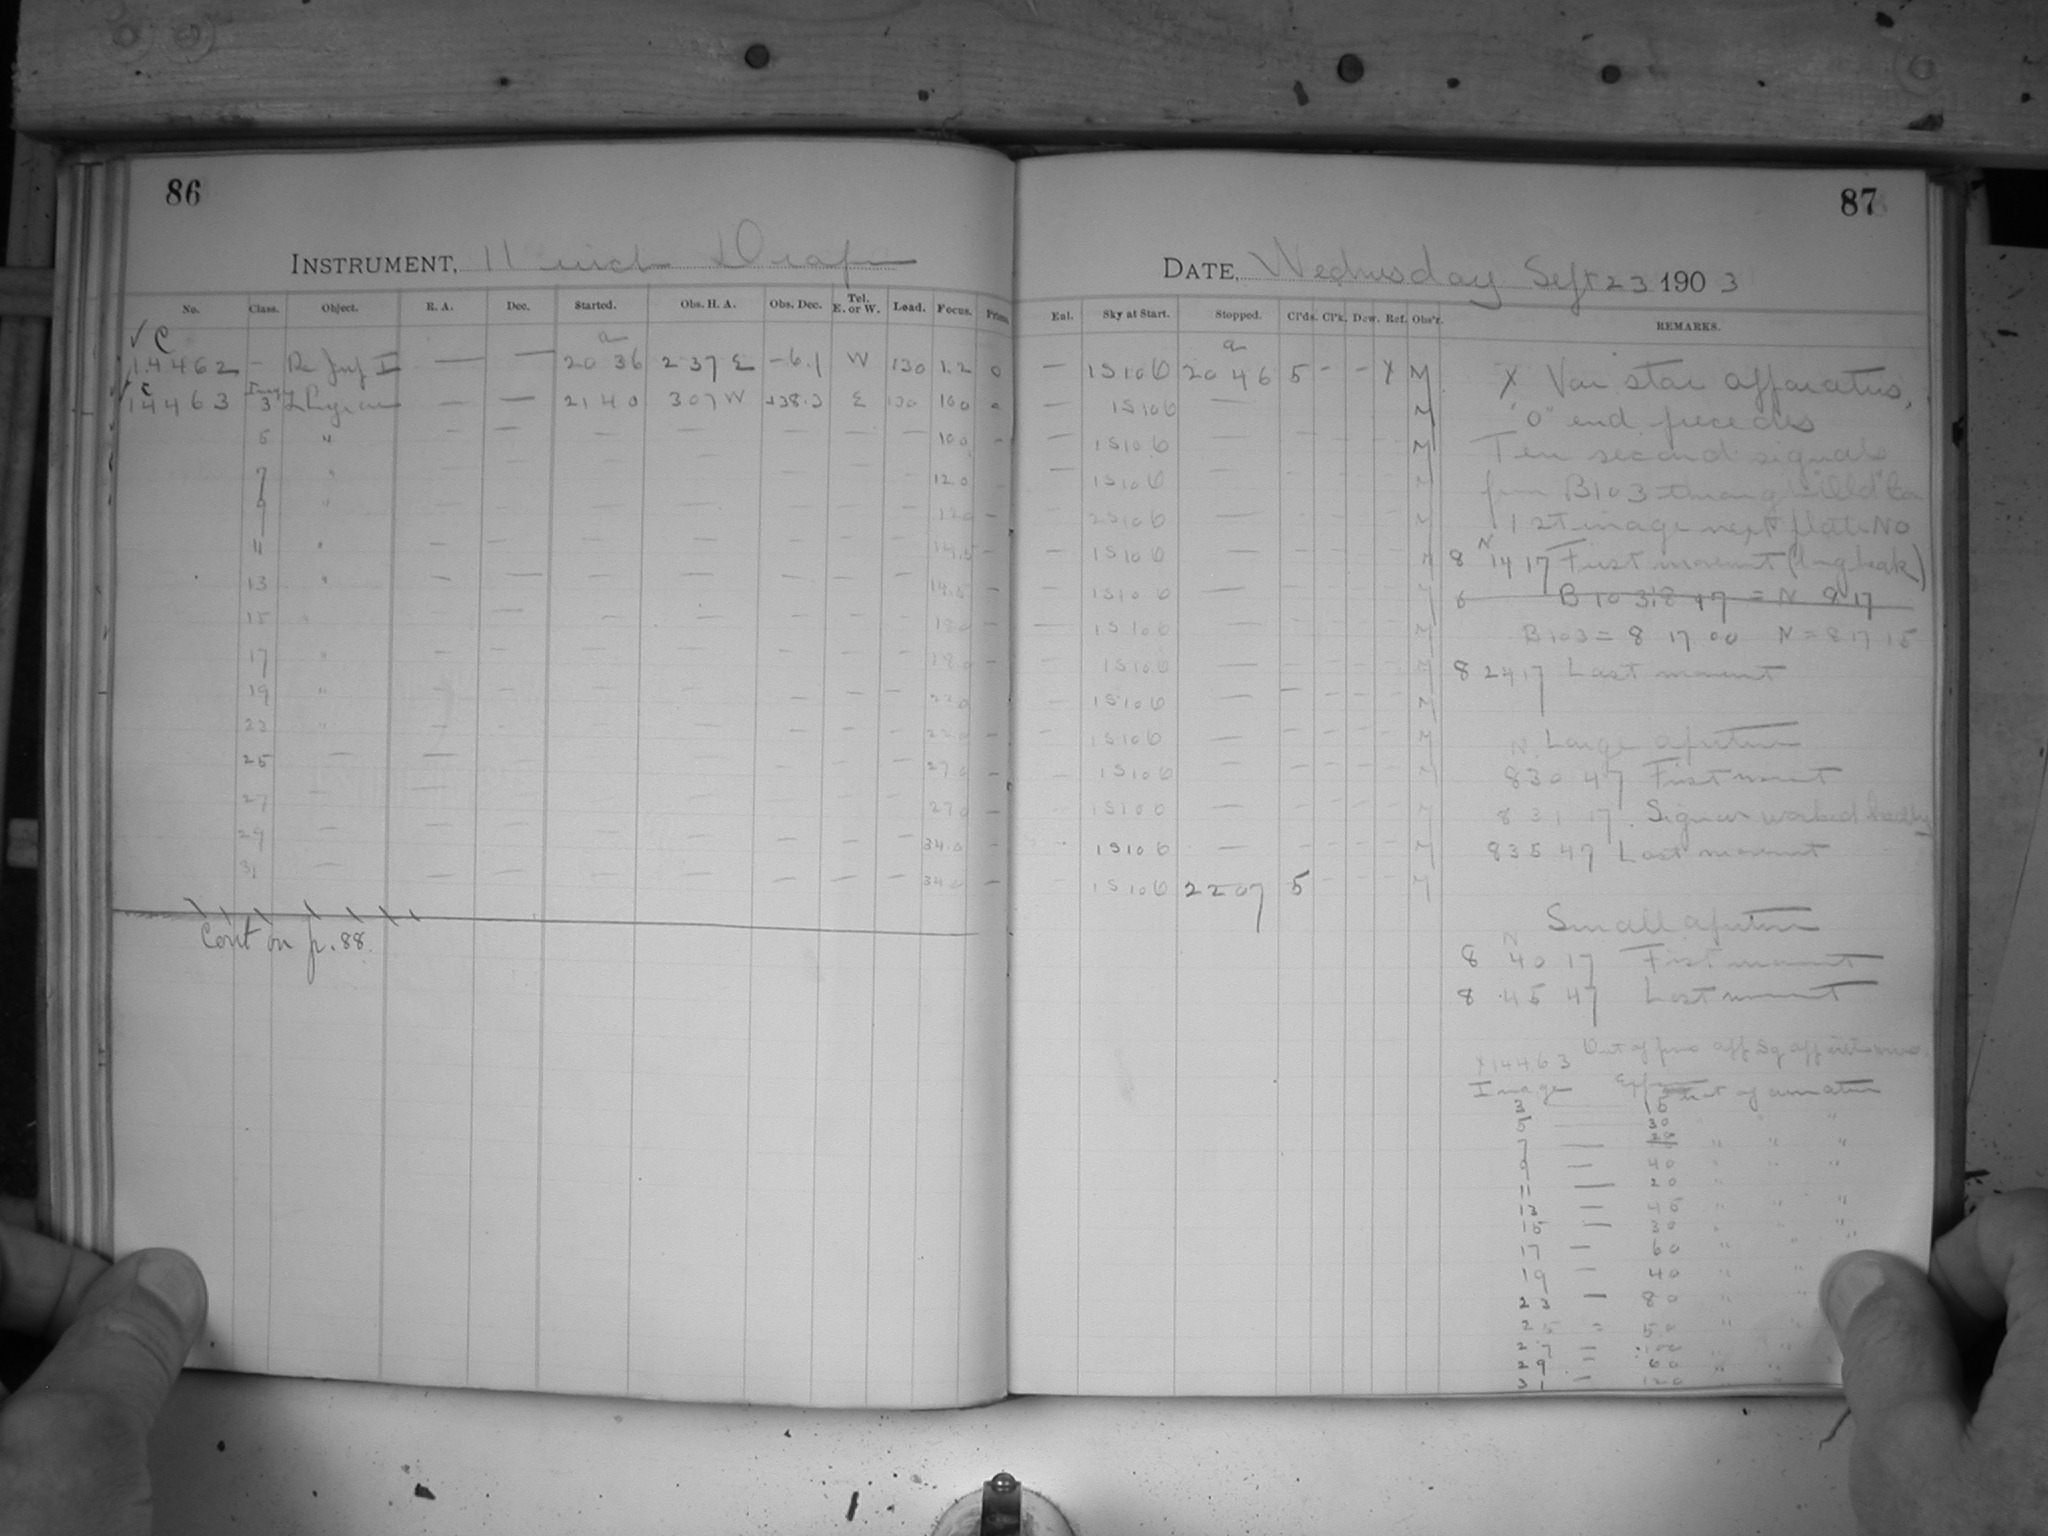 86
INSTRUMENT, 11 inch Draper
No. Class. Object. R. A. Dec. Started. Obs. H. A. Obs. Dec. Tel. E. or W. Load. Focus. Prisms
✓ C a
14462 — Ec Jup I — — 20 36 2 37 E -6.1 W 130 1.2 0
✓ C Image
14463 3 — — 21 40 3 07 W +38.3 E 130 10.0
5 " — — — — — — — 10.0 —
7 " — — — — — — — 12.0 —
9 " — — — — — — — 12.0 —
11 " — — — — — — — 14.5 —
13 " — — — — — — — 14.5 —
15 " — — — — — — — 18.0 —
17 " — — — — — — — 18.0 —
19 " — — — — — — — 22.0 —
23 " — — — — — — — 22.0 —
25 — — — — — — — — 27.0 —
27 — — — — — — — — 27.0 —
29 — — — — — — — — 34.0 —
31 — — — — — — — — 34.0 —
Cont on p. 88.
87
DATE, Wednesday Sept 23 1903
Enl. Sky at Start. Stopped. Cl'ds. Cl'k. Dew. Ref. Obs'r. REMARKS.
a
— 1S106 20 46 5 - - X M
— 1S106 — M
— 1S106 — M
— 1S106 — M
— 2S106 — M
— 1S106 — M
— 1S106 — M
— 1S106 — M
— 1S106 — M
— 1S106 — M
— 1S106 — M
— 1S106 — M
— 1S106 — M
— 1S106 — M
— 1S106 22 07 5 - - - M
X Var star apparatus,
"0" end precedes
Ten second signals
from B103 through "Old"
1st image next plate No
N
8 14 17 First movement (long break)
B103 = 8 17 00 N = 8 17 15
8 24 17 Last movement
N. Large aperture
8 30 47 First movement
8 31 17. Signal worked badly
8 35 47 Last movement
Small aperture
N
8 40 17 First movement
8 45 47 Last movement
X 14463 Out of
Image of armature
3 15
5 — 30 " "
7 — 20 " " "
9 — 40 " " "
11 — 20 "
13 — 45 " " "
15 — 30 " " "
17 — 60 " " "
19 — 40 " "
23 — 80 " "
25 = 50 " "
27 = 100 " "
29 = 60 " "
31 — 120 " "